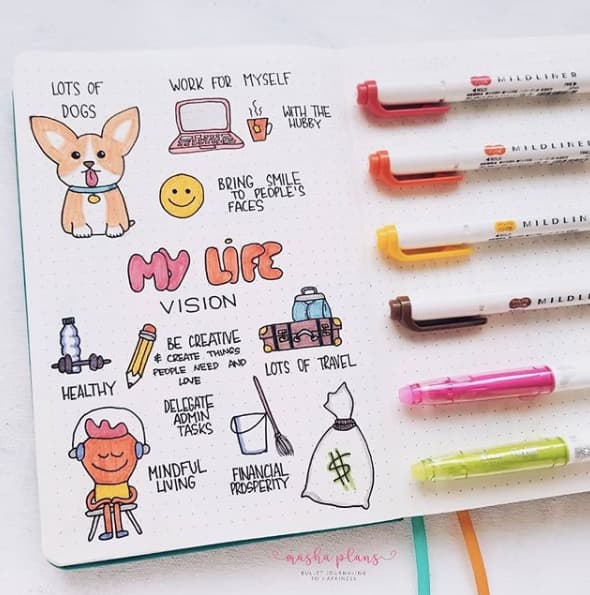 LOTS OF
DOGS
WORK FOR MYSELF
WITH THE
HUBBY
BRING SMILE
TO PEOPLE'S
FACES
MY LIFE
VISION
HEALTHY
BE CREATIVE
& CREATE THINGS
PEOPLE NEED AND
LOVE
LOTS OF TRAVEL
DELEGATE
ADMIN
TASKS
MINDFUL
LIVING
FINANCIAL
PROSPERITY
$
MILDLINER
MILDLINER
MILDLIN
MILDLIN
masha plans
BULLET JOURNALING
TO HAPPINESS